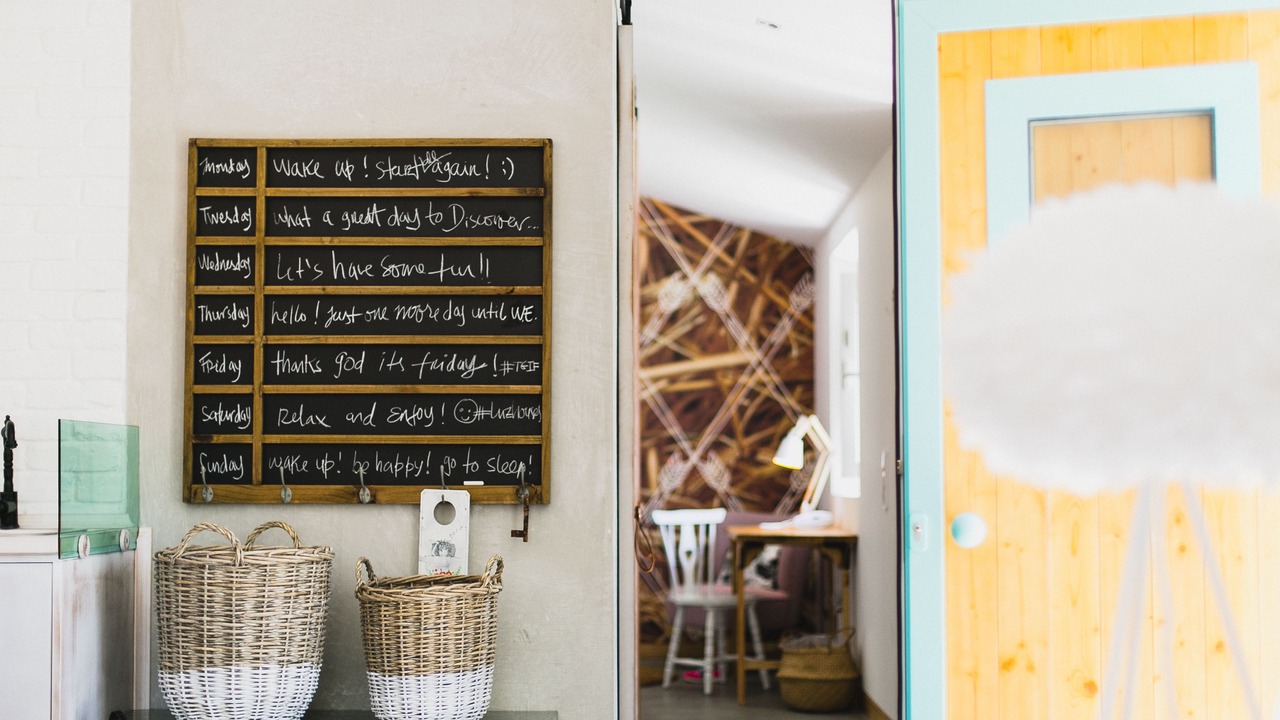 Monday wake up! Start again! :)
Tuesday what a great day to Discover...
Wednesday Let's have some fun!!
Thursday hello! just one more day until WE.
Friday thanks god its friday! #TGIF
Saturday Relax and Enjoy!
Sunday wake up! be happy! go to sleep!